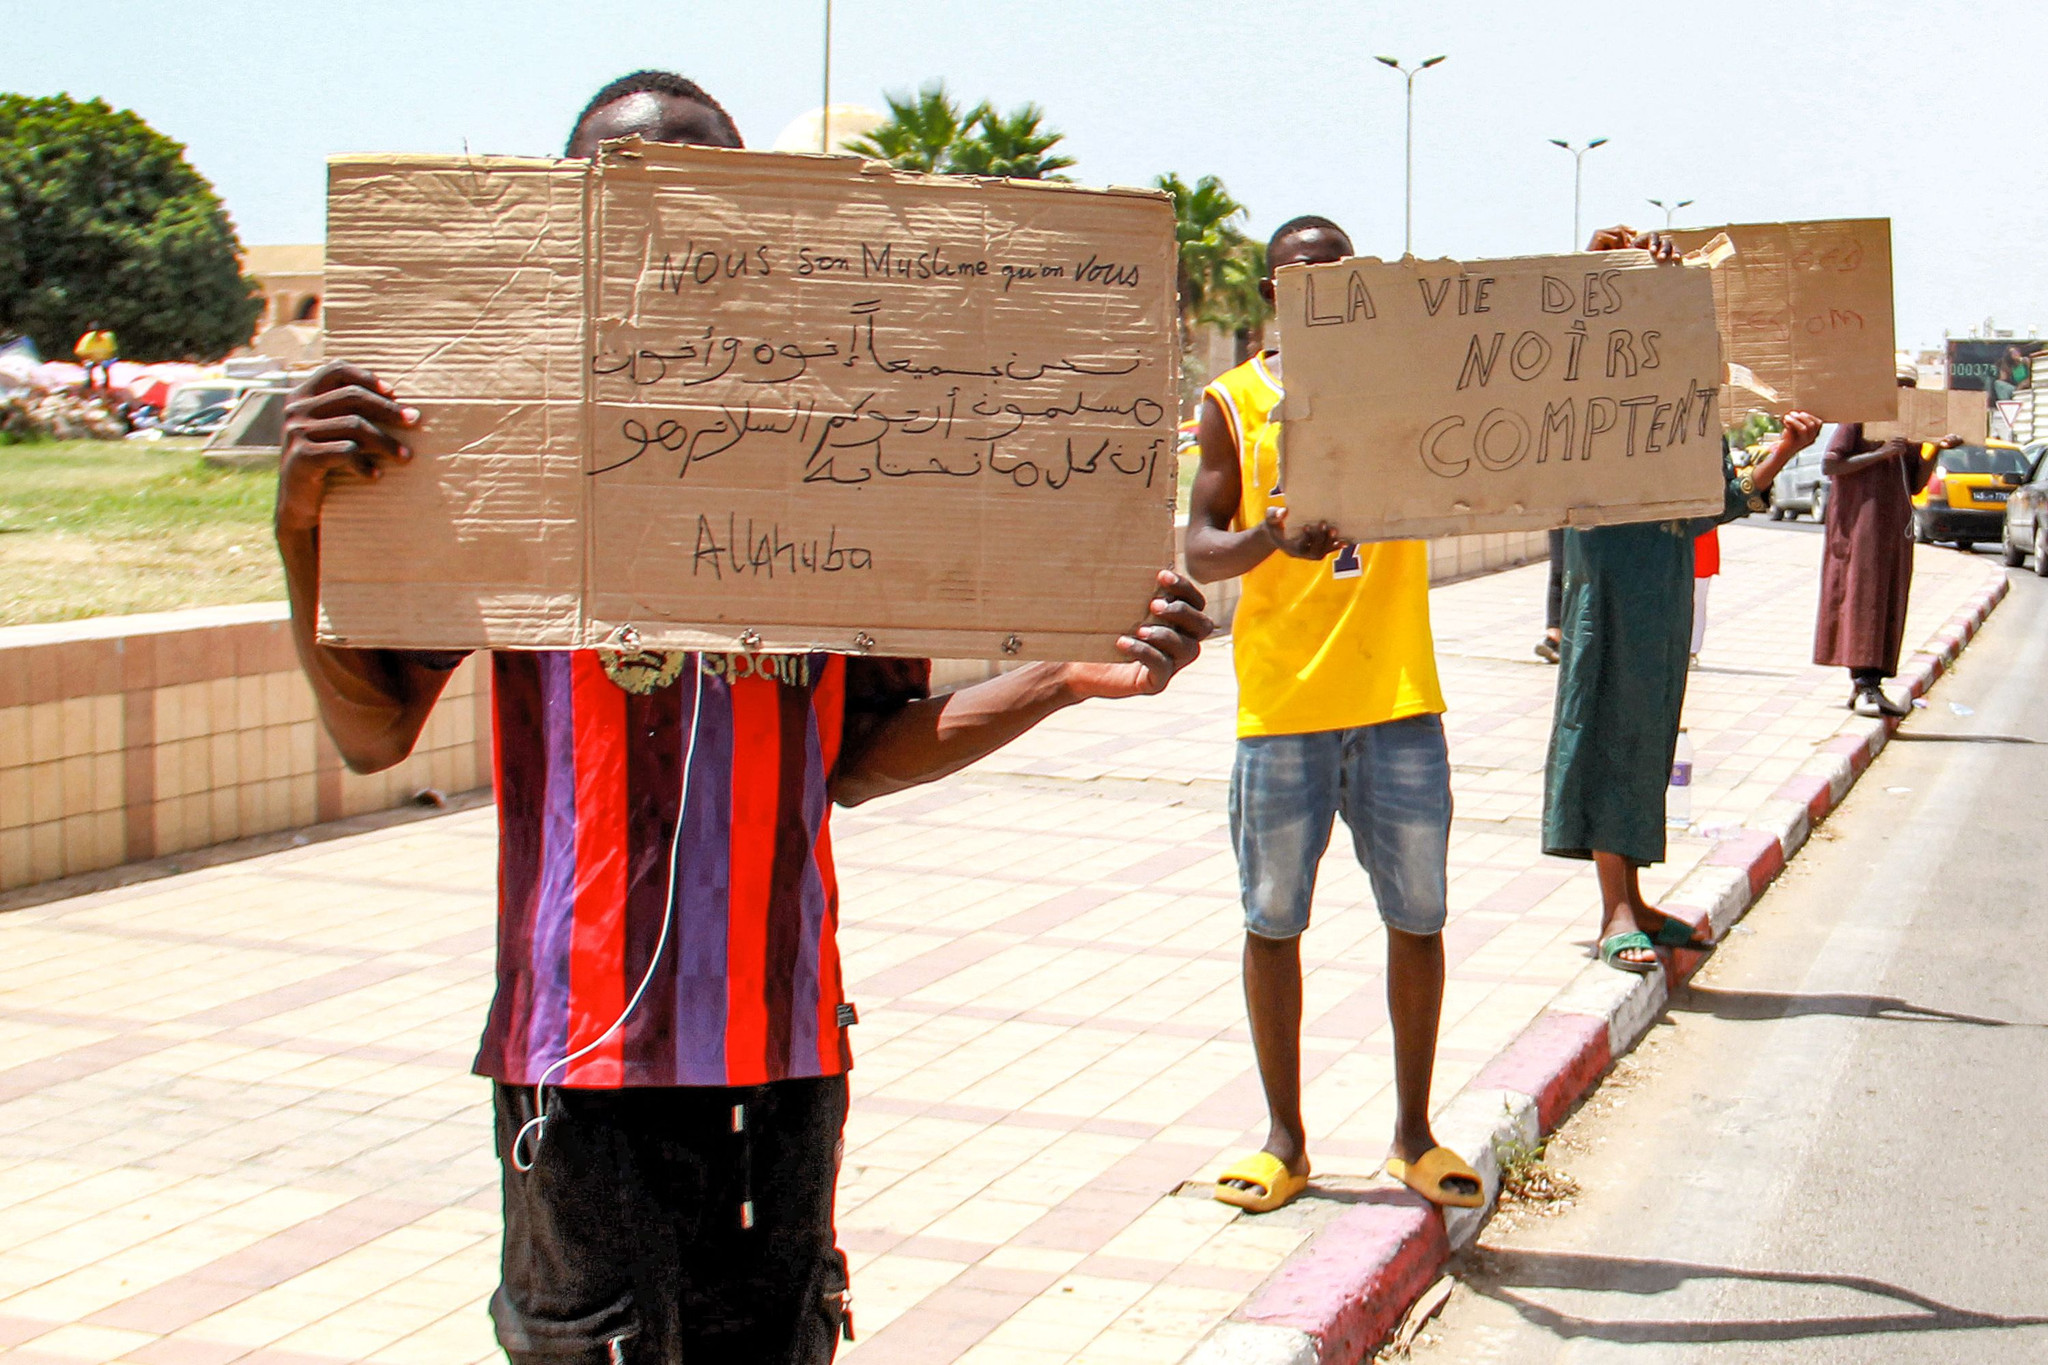 NOUS Son Muslime qu'on Vous
نحن جميعاً إخوه وأخوت
مسلمون أرجوكم السلام هو
أن كل ما نحتاجه
AllAhuba
LA VIE DES
NOIRS
COMPTENT
spotif
000375